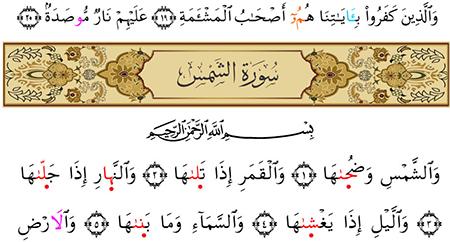 وَٱلَّذِينَ كَفَرُوا۟ بِـَٔايَـٰتِنَا هُمُۥٓ أَصْحَـٰبُ ٱلْمَشْـَٔمَةِ ﴿١٩﴾ عَلَيْهِمْ نَارٌ مُّوصَدَةٌۢ ﴿٢٠﴾
سُورَةُ الشَّمْسِ
بِسْمِ اللَّهِ الرَّحْمَٰنِ الرَّحِيمِ
وَٱلشَّمْسِ وَضُحَىٰهَا ﴿١﴾ وَٱلْقَمَرِ إِذَا تَلَىٰهَا ﴿٢﴾ وَٱلنَّهَارِ إِذَا جَلَّىٰهَا
﴿٣﴾ وَٱلَّيْلِ إِذَا يَغْشَىٰهَا ﴿٤﴾ وَٱلسَّمَآءِ وَمَا بَنَىٰهَا ﴿٥﴾ وَٱلَارْضِ